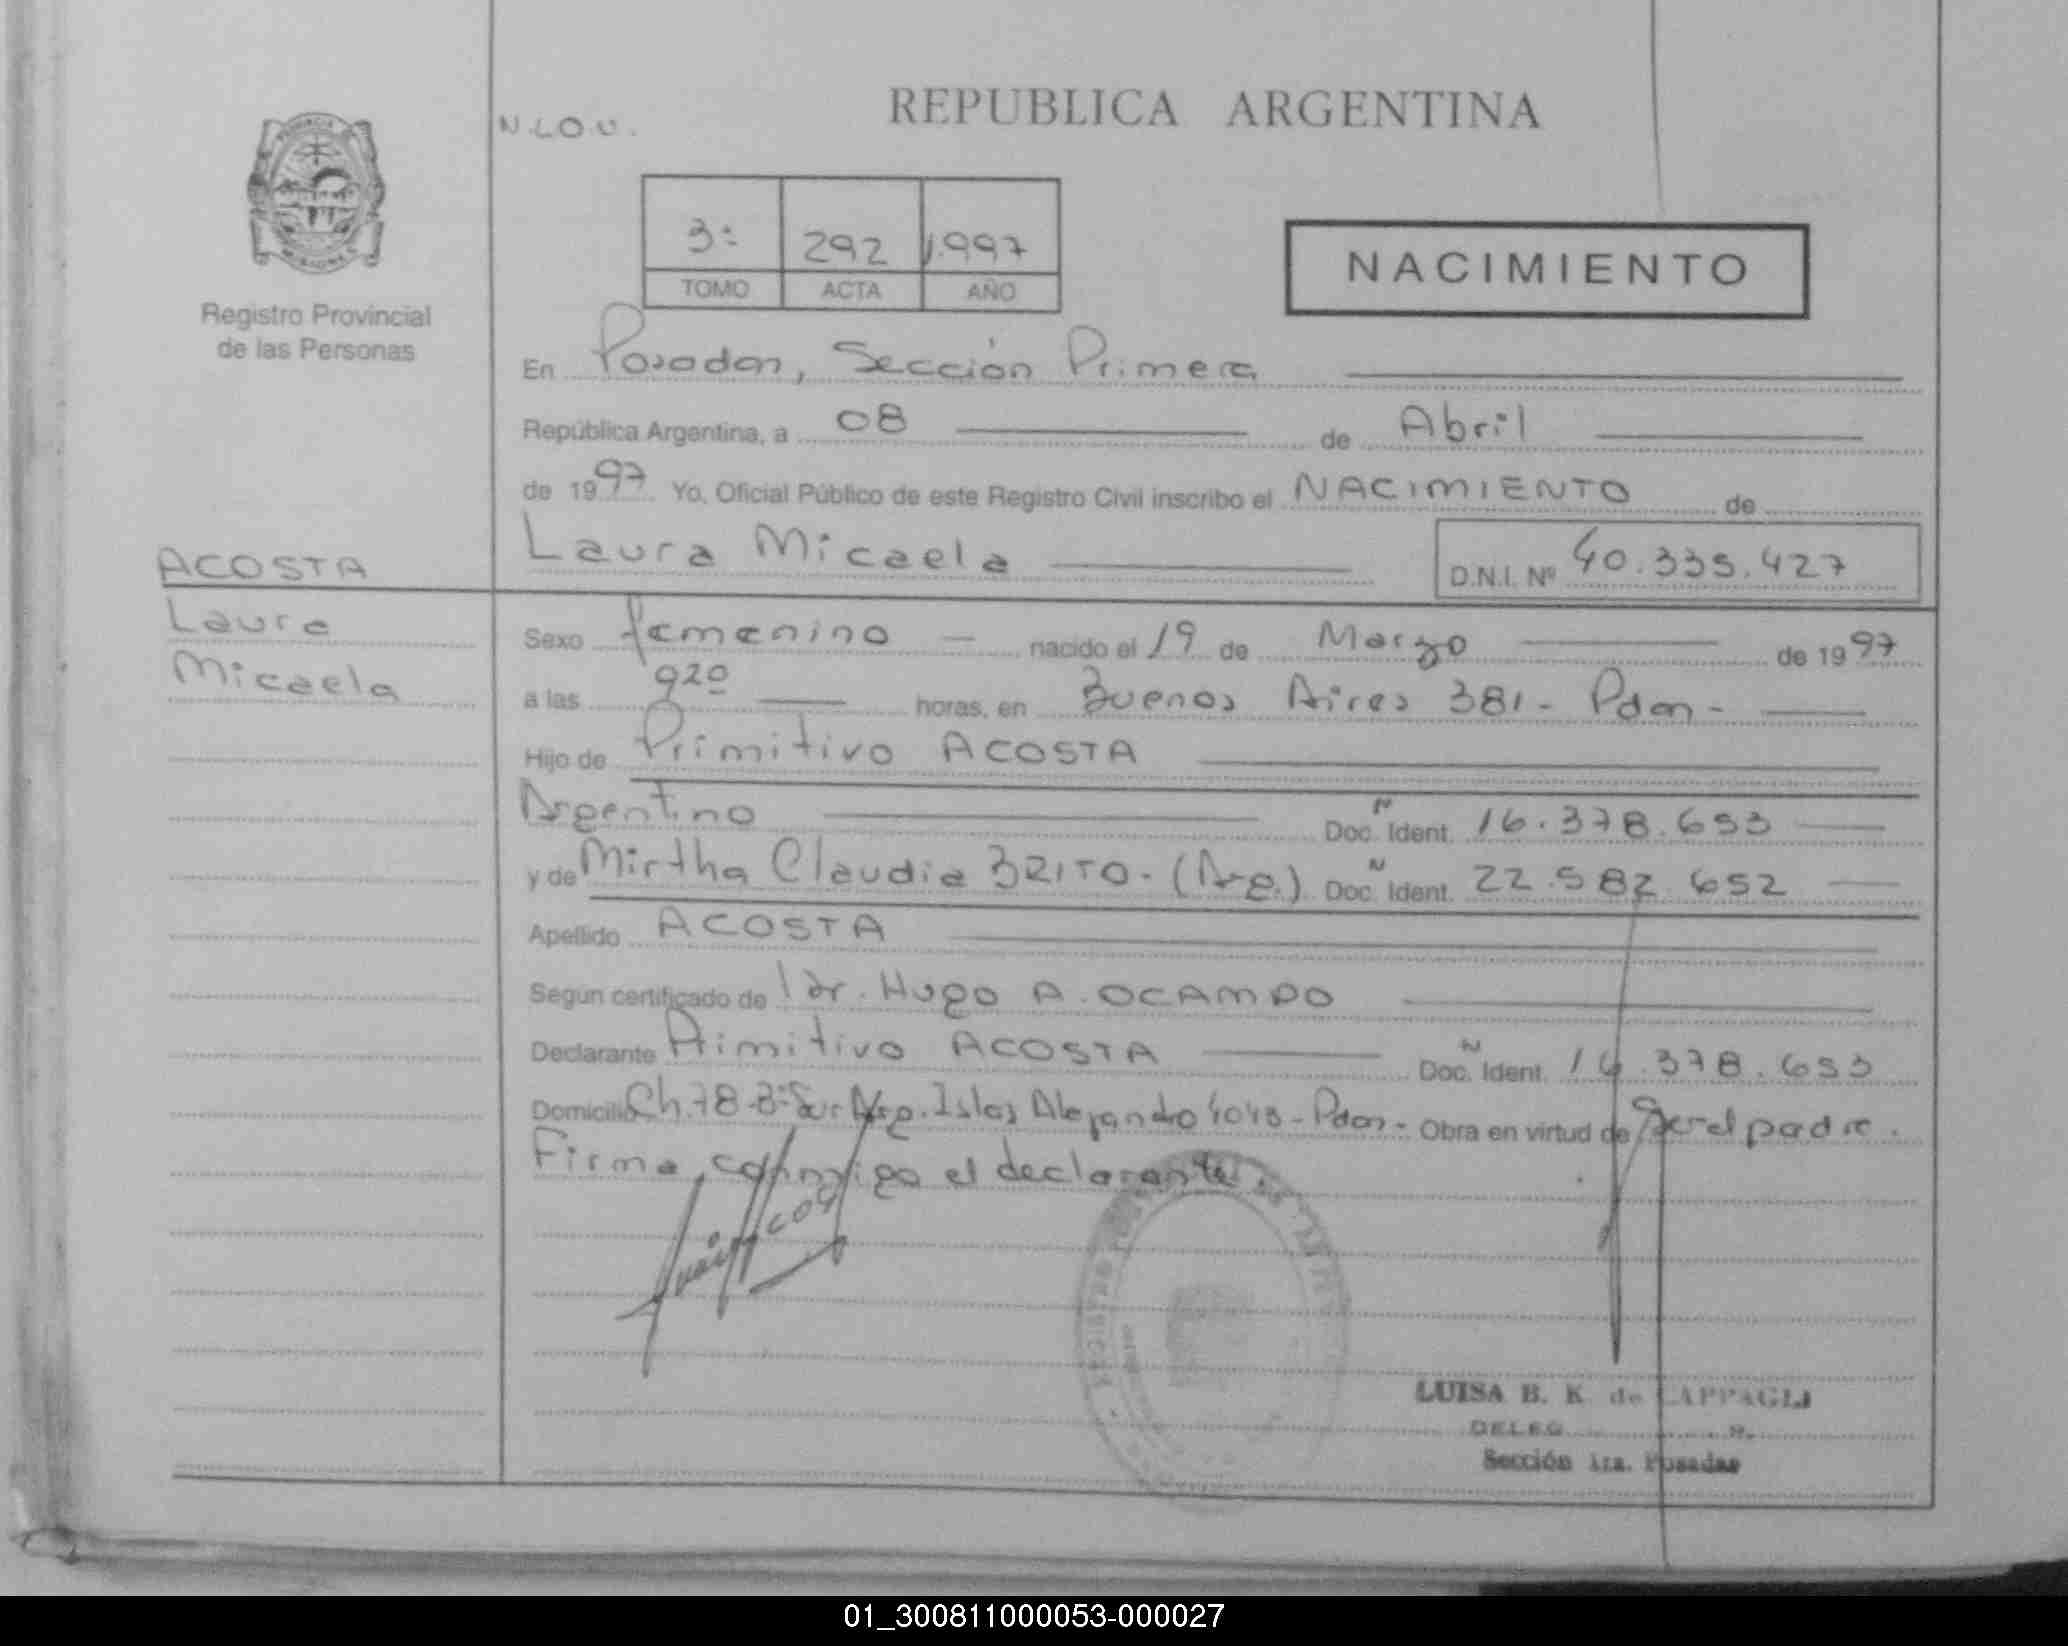 REPUBLICA ARGENTINA
N.LO.U.
3º 292 1.997
TOMO ACTA AÑO
NACIMIENTO
Registro Provincial
de las Personas
En Posadas, Sección Primera
República Argentina, a 08 de Abril
de 1997 Yo, Oficial Público de este Registro Civil inscribo el NACIMIENTO de
Laura Micaela
D.N.I. Nº 40.335.427
ACOSTA
Laura
Micaela
Sexo femenino nacido el 19 de Marzo de 1997
a las 920 horas, en Buenos Aires 381 - Pdas -
Hijo de Primitivo ACOSTA
Argentino Doc. Ident. 16.378.653
y de Mirtha Claudia BRITO. (Arg.) Doc. Ident. 22.582.652
Apellido ACOSTA
Según certificado de Dr. Hugo A. OCAMPO
Declarante Primitivo ACOSTA Doc. Ident. 16.378.653
Domicilio Ch.78-B: Sur Arg. Islas Alejandro 4043 - Pdas - Obra en virtud de Ser el padre.
Firma conmigo el declarante.
LUISA B. K. de CAPPAGLI
DELEG
Sección 1ra. Posadas
01_300811000053-000027